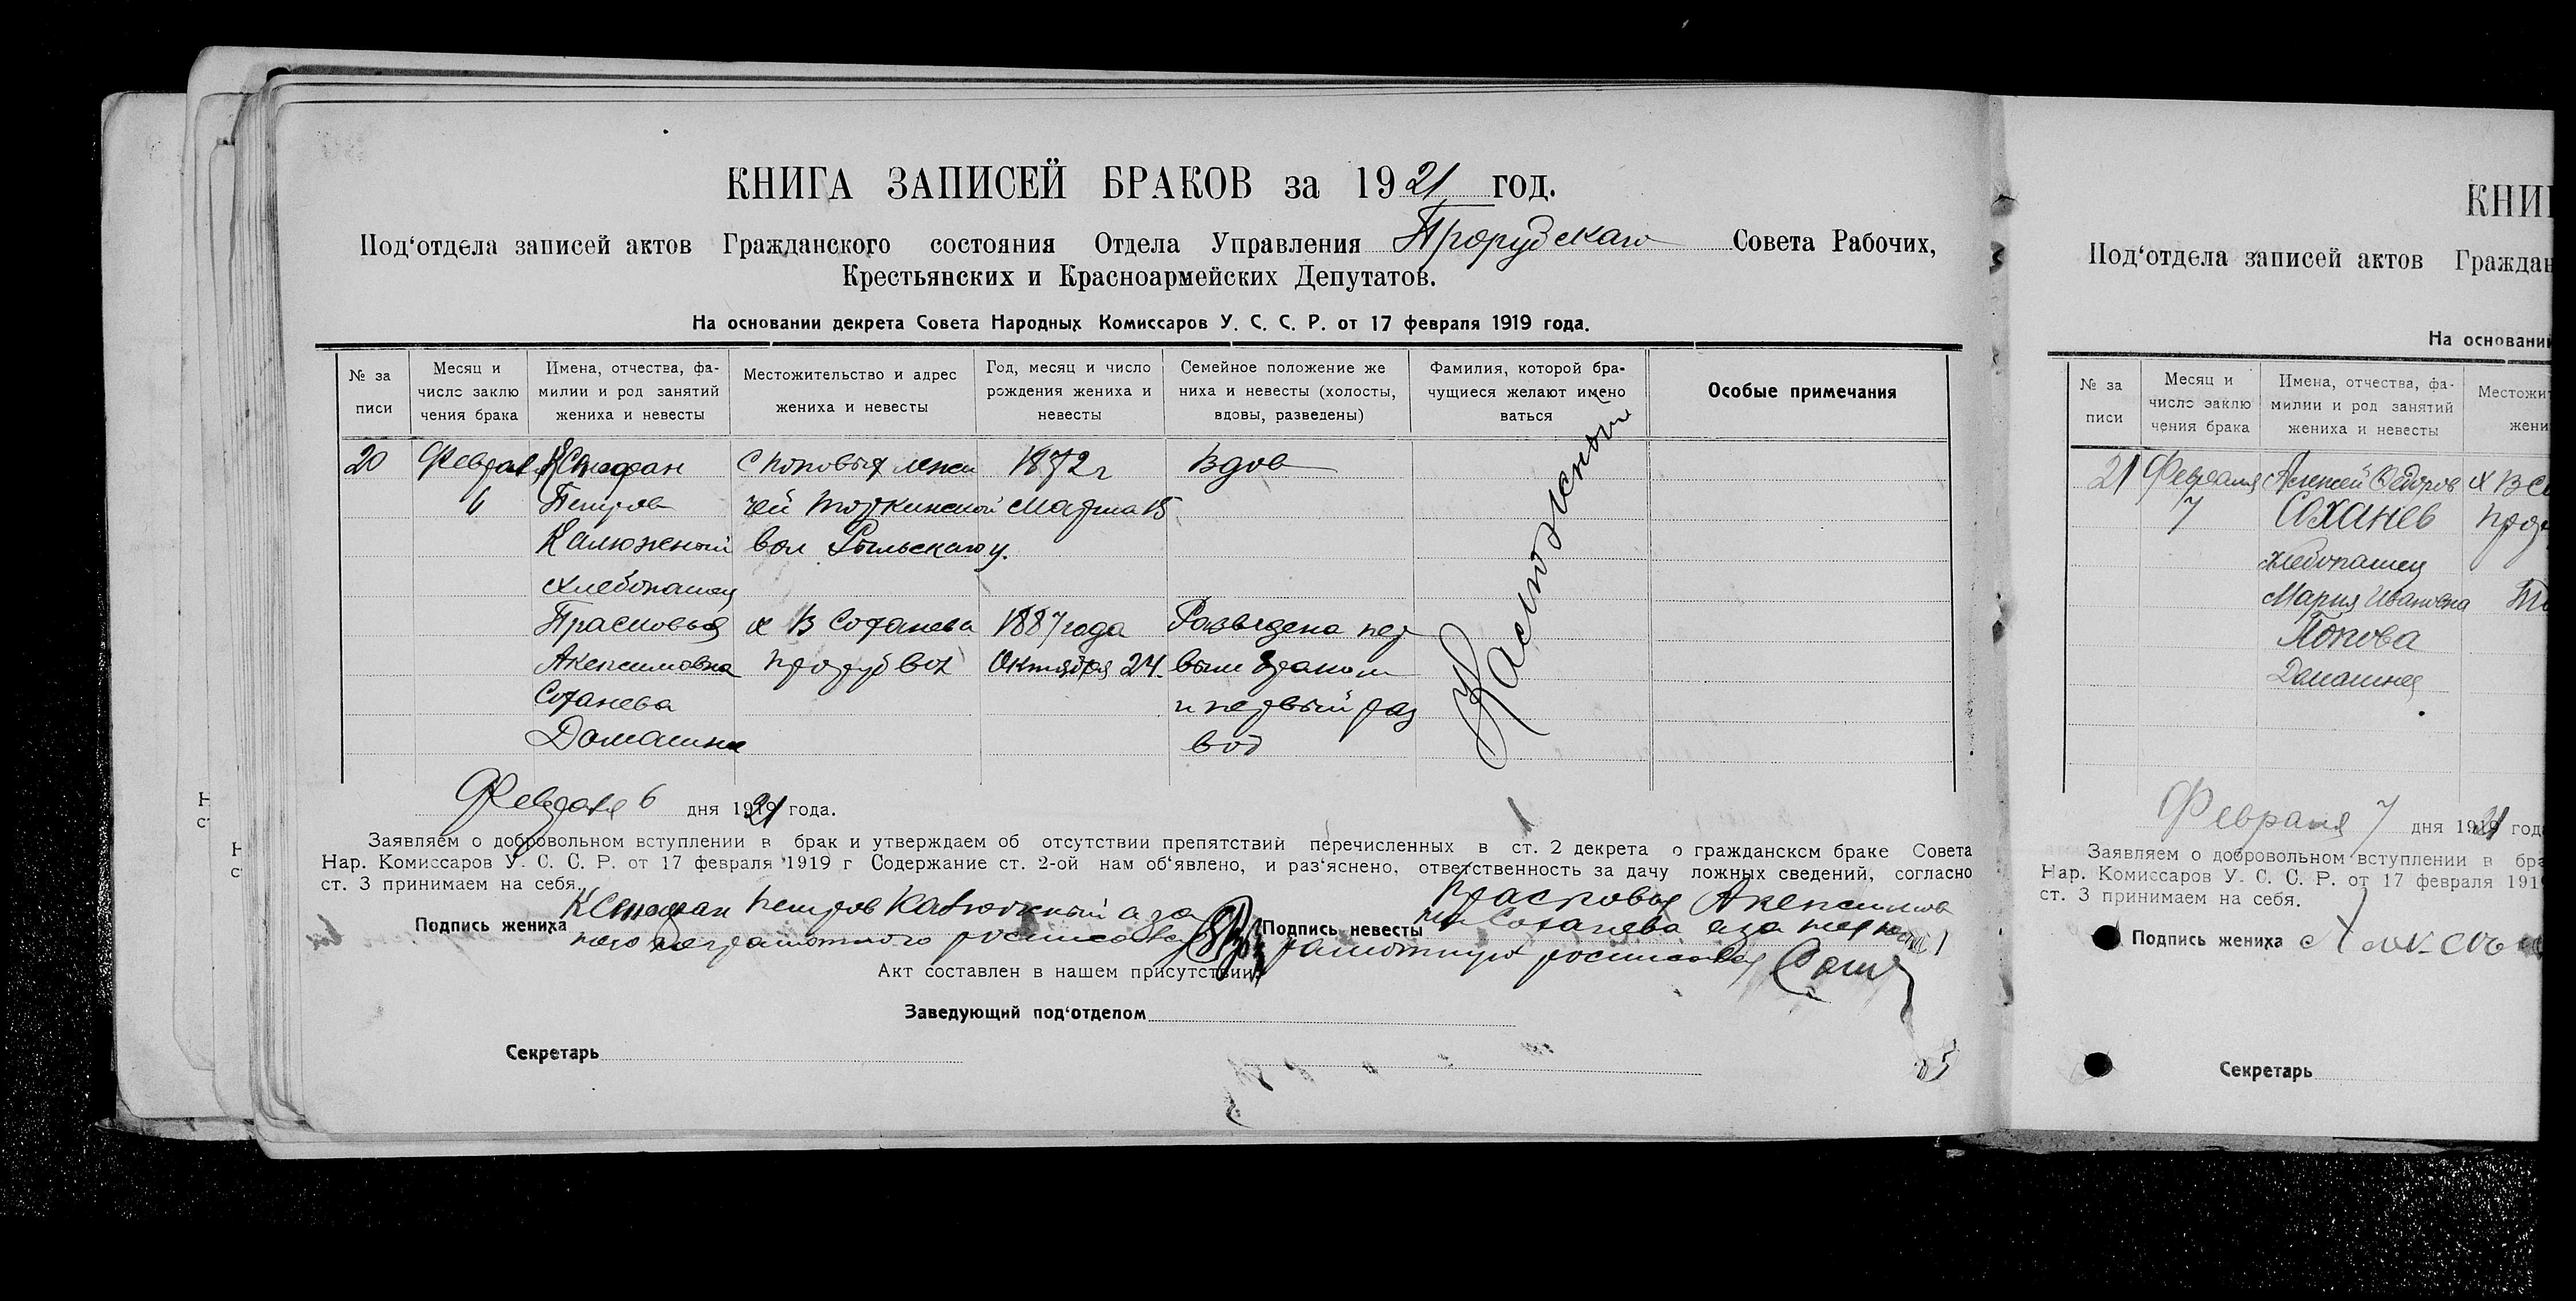 КНИГА ЗАПИСЕЙ БРАКОВ за 1921 год.
Под‘отдела записей актов Гражданского состояния Отдела Управления Прорубскаго Совета Рабочих,
Крестьянских и Красноармейских Депутатов.
На основании декрета Совета Народных Комиссаров У. С. С. Р. от 17 февраля 1919 года.
№ за писи
Месяц и число заклю чения брака
Имена, отчества, фа- милии и род занятий жениха и невесты
Местожительство и адрес жениха и невесты
Год, месяц и число рождения жениха и невесты
Семейное положение же ниха и невесты (холосты, вдовы, разведены)
Фамилия, которой бра- чущиеся желают имено ваться
Особые примечания
20 Феврал 6
Стефан
Петров
Калюжный
хлебопашец
с Поповых лежа
чей вол Рыльскаго у.
1872 г
Марта 15
Вдов
Калюжный
Прасковья
Аксенимовна
Соханева
Домашне
х В Соханева
проруб вол
1887 года
Октября 24.
Разведена пер
вым браком
и первый раз
вод
Февраля 6 дня 1921 года.
Заявляем о добровольном вступлении в брак и утверждаем об отсутствии препятствий перечисленных в ст. 2 декрета о гражданском браке Совета
Нар. Комиссаров У. С. С. Р. от 17 февраля 1919 г Содержание ст. 2-ой нам об‘явлено, и раз‘яснено, ответственность за дачу ложных сведений, согласно
ст. 3 принимаем на себя.
Подпись жениха Петров Калюжный а за
него неграмотного росписался
Подпись невесты Прасковья
Соханева а за нея
росписался
Акт составлен в нашем присутствии
Заведующий под‘отделом
Секретарь
КНИГ
Под‘отдела записей актов Граждан
На основани
№ за писи
Месяц и число заклю чения брака
Имена, отчества, фа- милии и род занятий жениха и невесты
Местожит
жени
21 Февраля 7
Алексей Федоров
Соханев
хлебопашец
Мария Ивановна
Попова
Домашнея
х В Со
Февраля 7 дня 1921 год
Заявляем о добровольном вступлении в бра
Нар. Комиссаров У. С. С. Р. от 17 февраля 191
ст. 3 принимаем на себя.
Подпись жениха
Секретарь